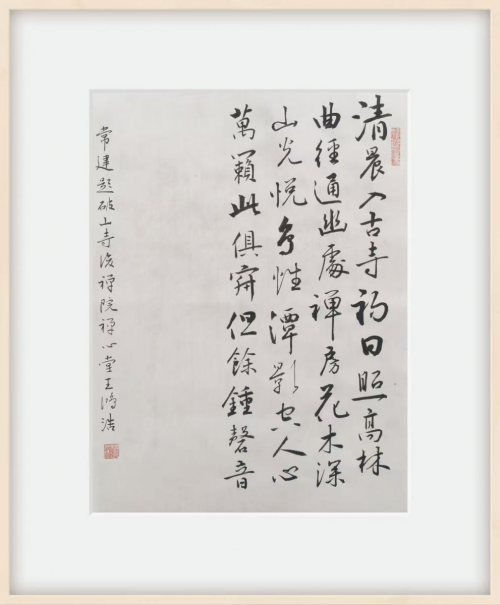 清晨入古寺初日照高林
曲徑通幽處禅房花木深
山光悦鳥性潭影空人心
萬籟此俱寂但餘鍾磬音
常建題破山寺后禅院禅心堂王鴻浩